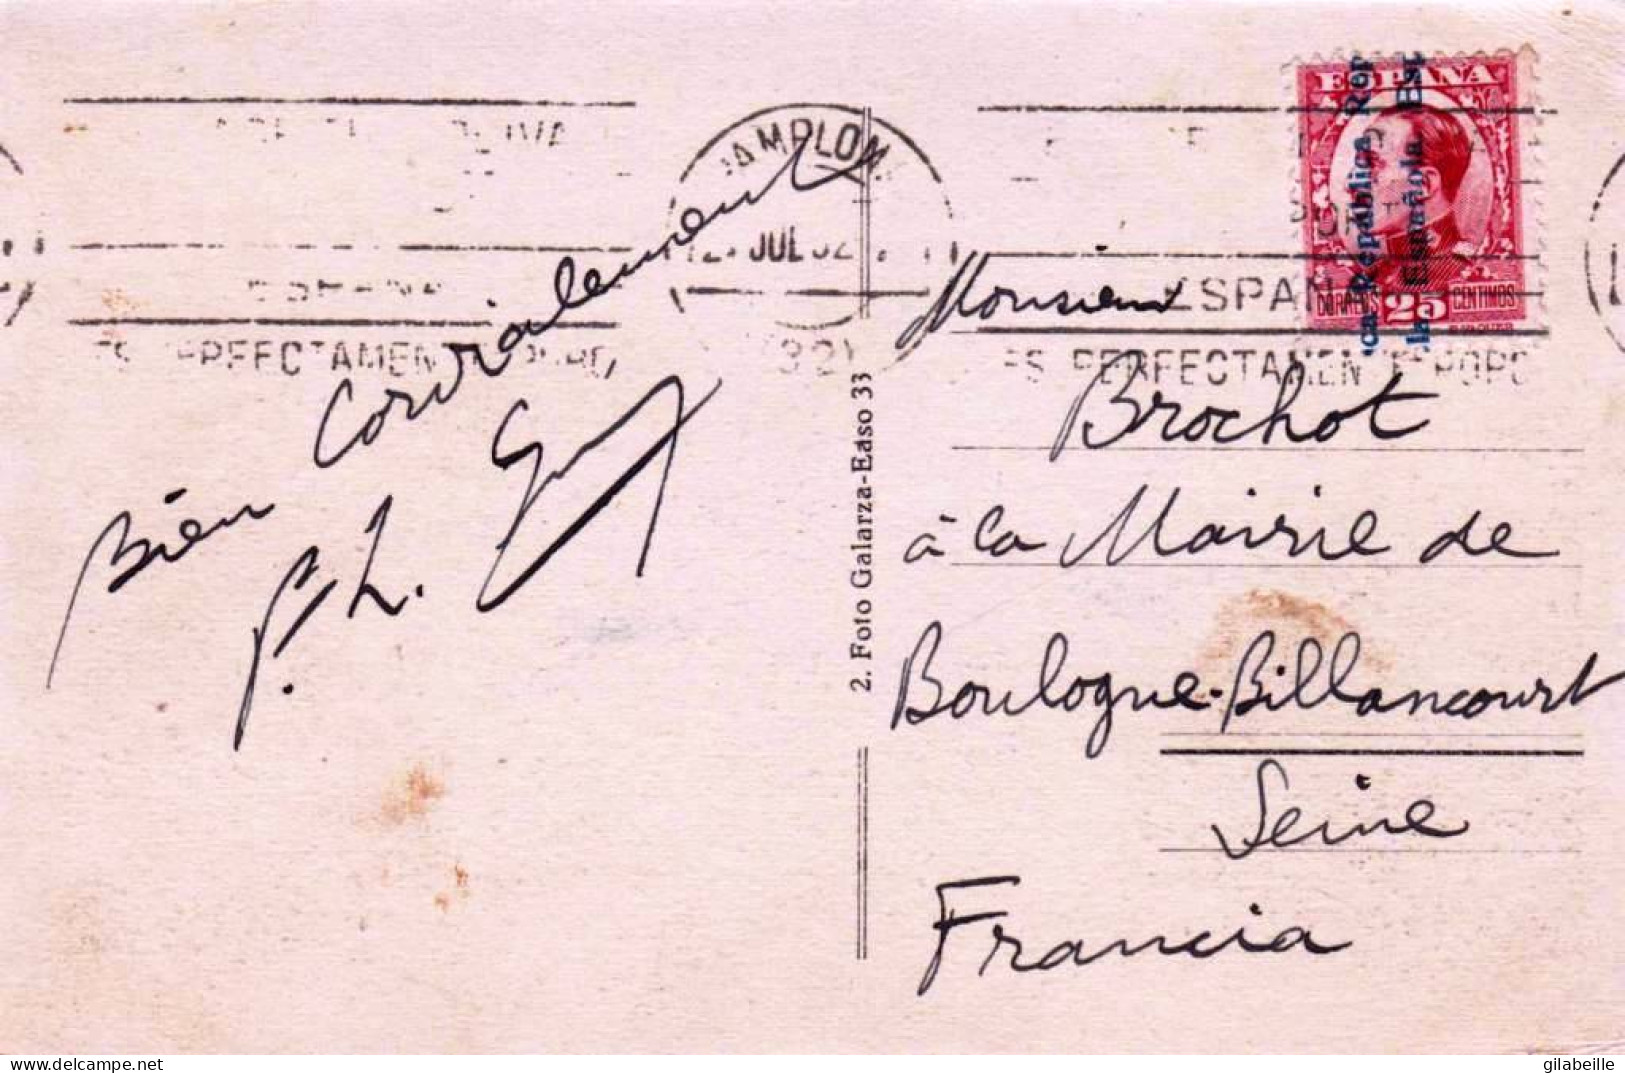 ESPAÑA
República
Española
CORREOS 25 CENTIMOS
JUL 32
ESPAN
ES PERFECTAMENTE
Bien
Cordialement
Ph.
2. Foto Galarza-Easo 33
Monsieur
Brochot
à la Mairie de
Boulogne-Billancourt
Seine
Francia
www.delcampe.net
gilabeille